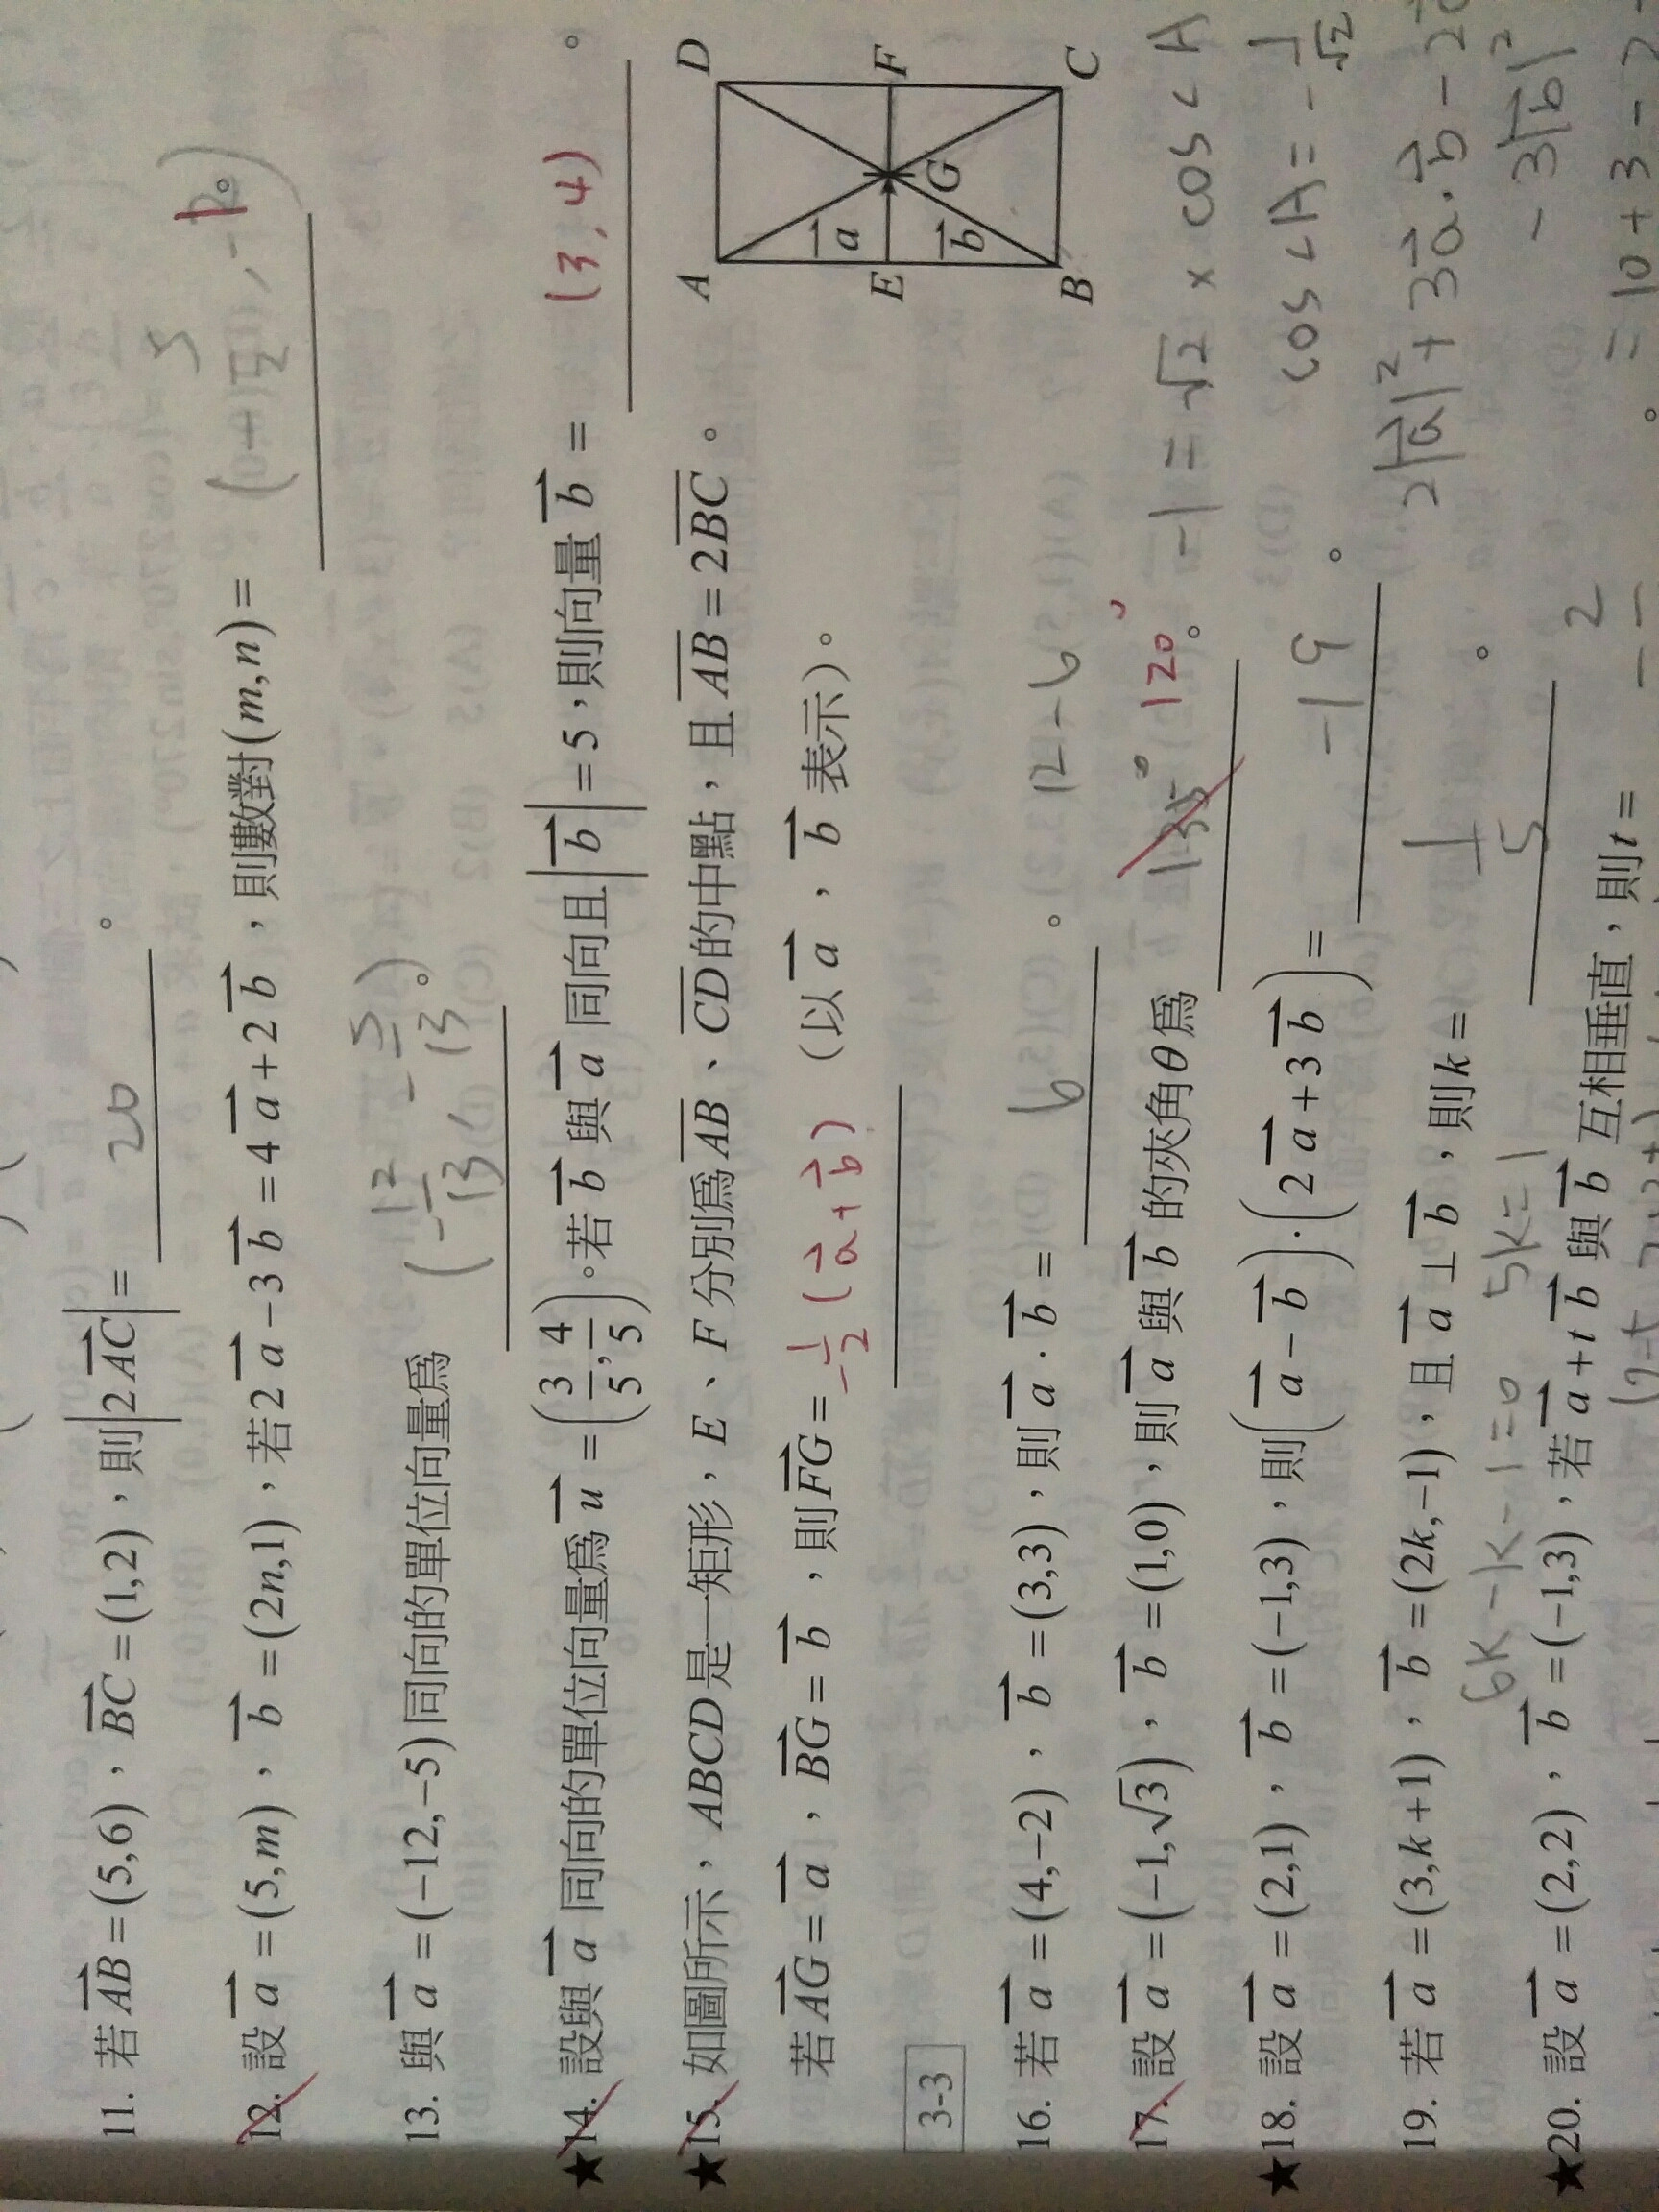 11. 若 AB = (5,6)，BC = (1,2)，則 |2AC| = 20 。
12. 設 a = (5,m)，b = (2n,1)，若 2a − 3b = 4a + 2b，則數對(m,n) =
13. 與 a = (−12,−5) 同向的單位向量為 (−12/13, −5/13)。
★14. 設與 a 同向的單位向量為 u = (3/5, 4/5)。若 b 與 a 同向且 |b| = 5，則向量 b = (3,4) 。
★15. 如圖所示，ABCD 是一矩形，E、F 分別為 AB、CD 的中點，且 AB = 2BC。
若 AG = a，BG = b，則 FG = −1/2 (a+b) （以 a，b 表示）。
A
D
a
E
G
F
b
B
C
3-3
16. 若 a = (4,−2)，b = (3,3)，則 a · b = 6 。 12−6
17. 設 a = (−1,√3)，b = (1,0)，則 a 與 b 的夾角θ為 135° 120° 。
−1 = √2 × cos∠A
cos∠A = −1/√2
★18. 設 a = (2,1)，b = (−1,3)，則 (a − b)·(2a + 3b) = −19 。
2|a|² + 3a·b − 2
− 3|b|²
= 10 + 3 − 2
19. 若 a = (3,k+1)，b = (2k,−1)，且 a ⊥ b，則 k = 1/5 。
6k − k − 1 = 0 5k = 1
★20. 設 a = (2,2)，b = (−1,3)，若 a + t b 與 b 互相垂直，則 t = 。